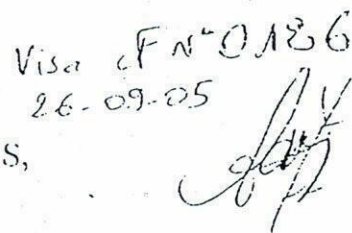 Visa CF N° 0186
26-09-05
s,